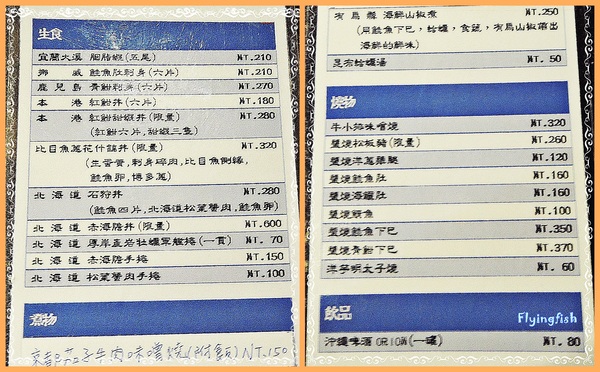 生食
宜蘭大溪 胭脂蝦(五尾) NT.210
挪 威 鮭魚肚刺身(六片) NT.210
鹿 兒 島 青魽刺身(六片) NT.270
本 港 紅魽丼(六片) NT.180
本 港 紅魽甜蝦丼(限量) NT.280
(紅魽六片,甜蝦三隻)
比目魚蔥花什錦丼(限量) NT.320
(生蛋黃,刺身碎肉,比目魚側緣,
鮭魚卵,博多蔥)
北 海 道 石狩丼 NT.280
(鮭魚四片,北海道松葉蟹肉,鮭魚卵)
北 海 道 赤海膽丼(限量) NT.600
北 海 道 厚岸產岩牡蠣軍艦捲(一貫) NT. 70
北 海 道 赤海膽手捲 NT.150
北 海 道 松葉蟹肉手捲 NT.100
煮物
茄子牛肉味噌燒(附飯) NT.150
有 馬 風 海鮮山椒煮 NT.250
(用鮭魚下巴,蛤蠣,食蔬,有馬山椒滷出
海鮮的鮮味)
昆布蛤蠣湯 NT. 50
燒物
牛小排味噌燒 NT.320
鹽燒松板豬(限量) NT.260
鹽燒洋蔥雞腿 NT.120
鹽燒鮭魚肚 NT.160
鹽燒海鱺肚 NT.160
鹽燒鯖魚 NT.100
鹽燒鮭魚下巴 NT.350
鹽燒青魽下巴 NT.370
洋芋明太子燒 NT. 60
飲品
Flyingfish
沖繩啤酒 ORION(一罐) NT. 80